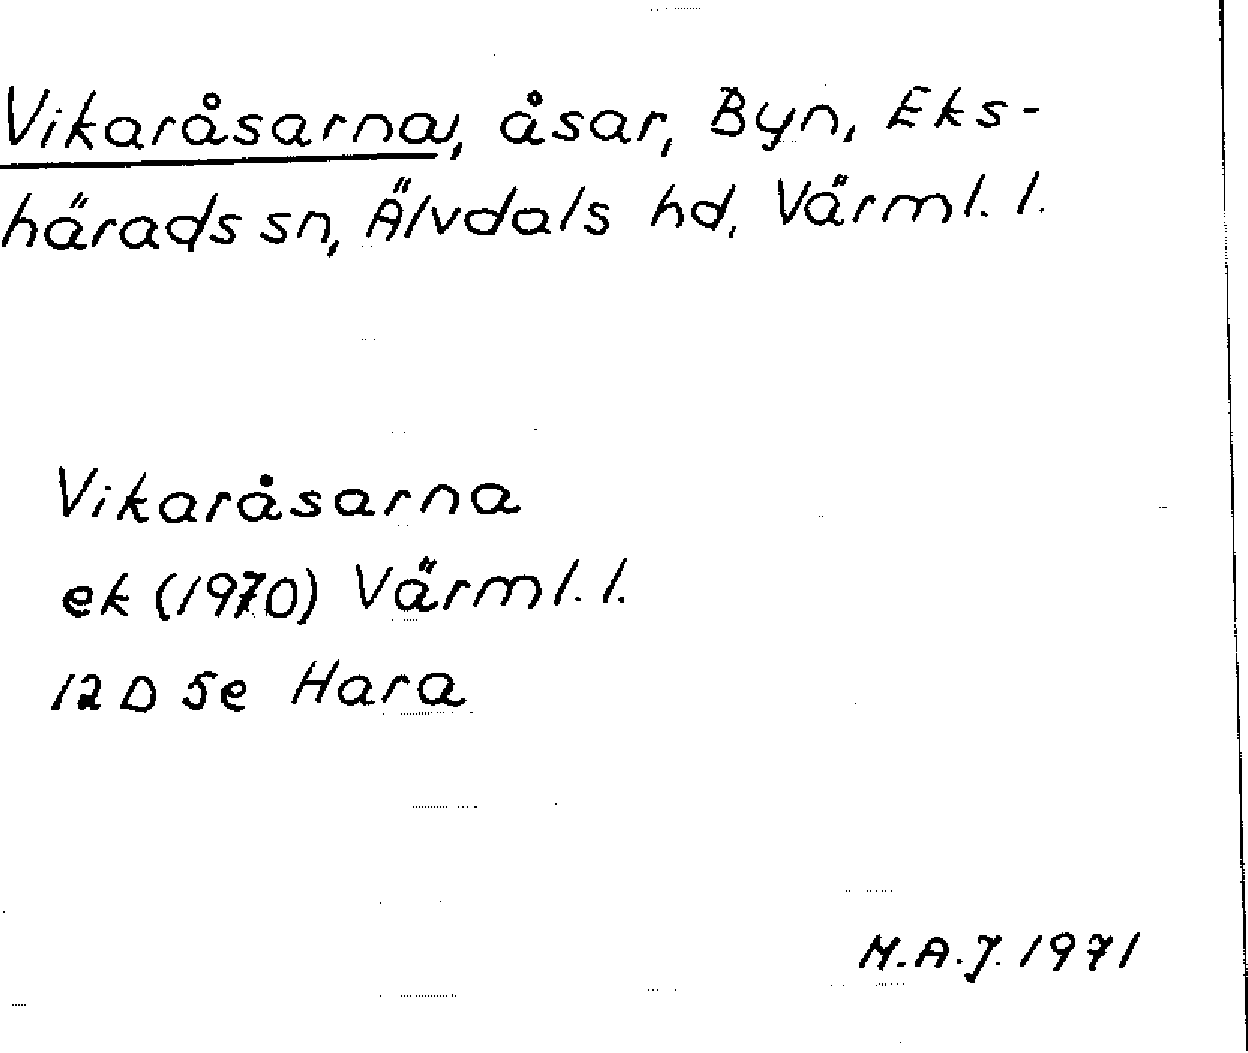 Vikaråsarna, åsar, Byn, Eks-
härads sn, Älvdals hd, Värml. l.
Vikaråsarna
ek (1970) Värml. l.
12 D 5e Hara
M.A.J. 1971